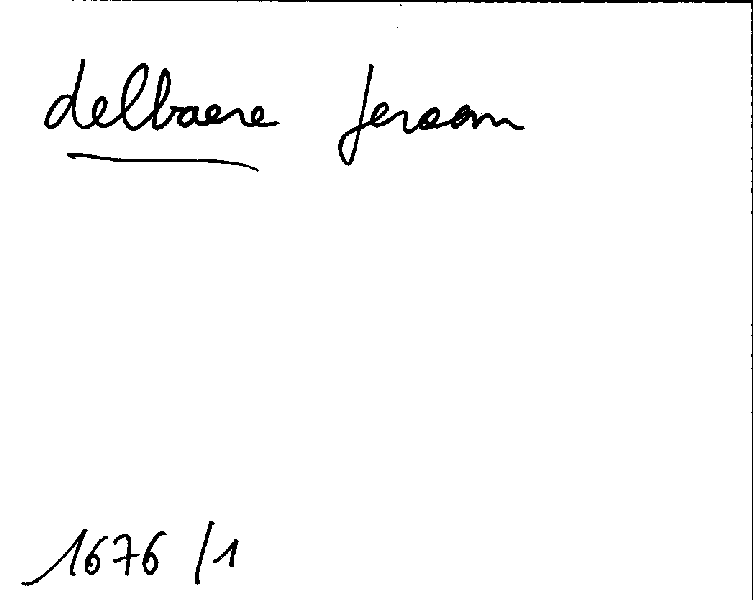 delbaere Jeroom
1676 /1